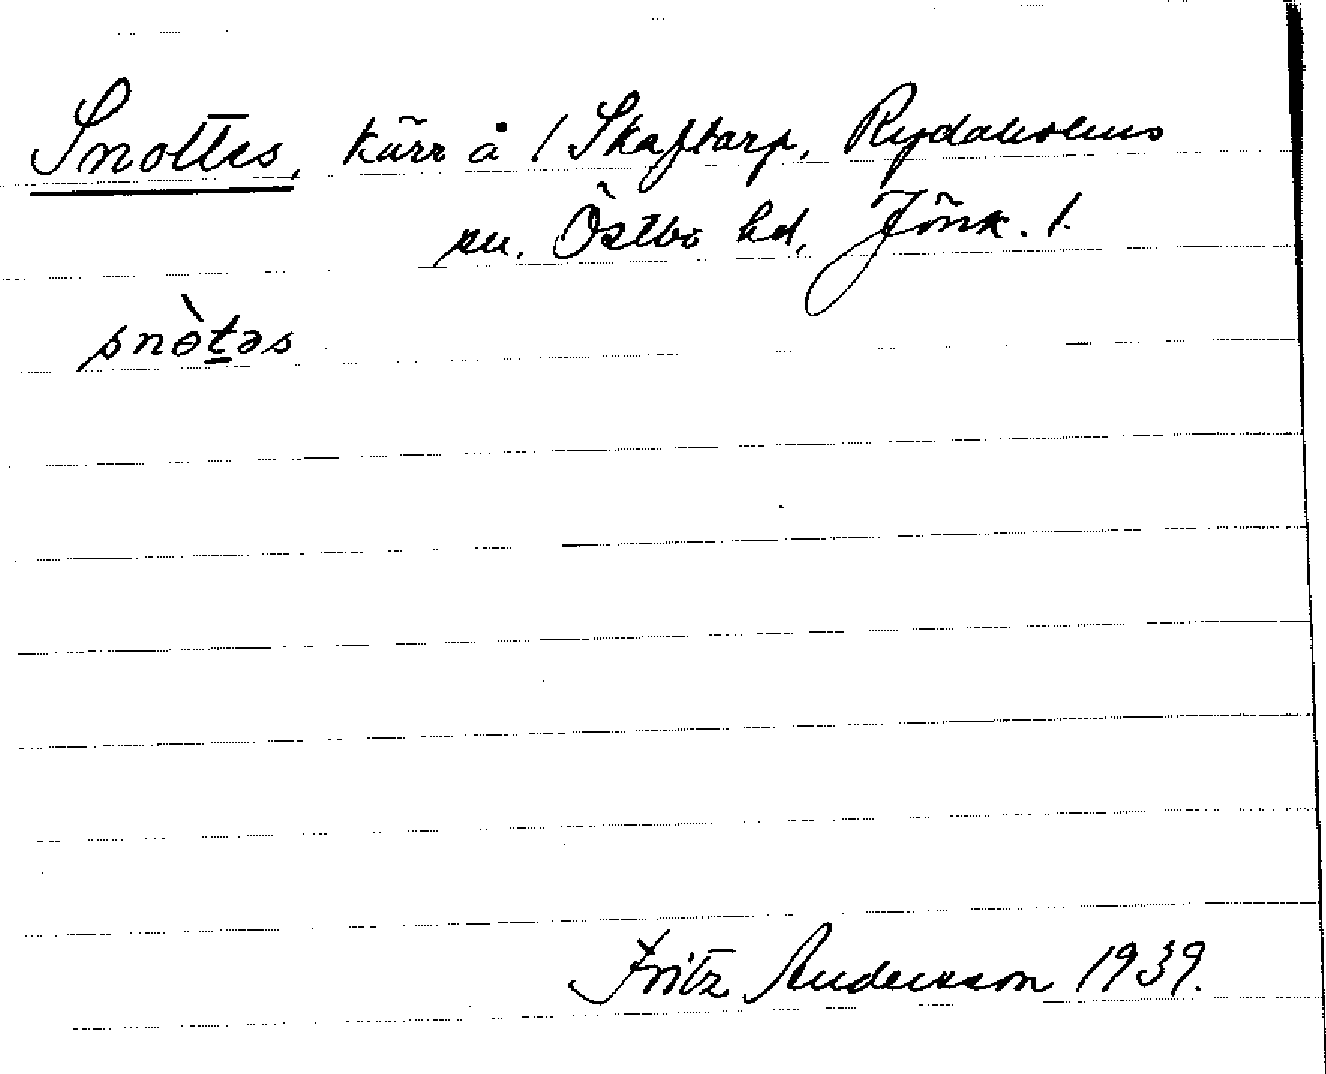 Snottes, kärr å 1 Skaftarp, Rydaholms
sn. Östbo hd, Jönk. l.
snòt̠əs
Fritz Andersson 1939.